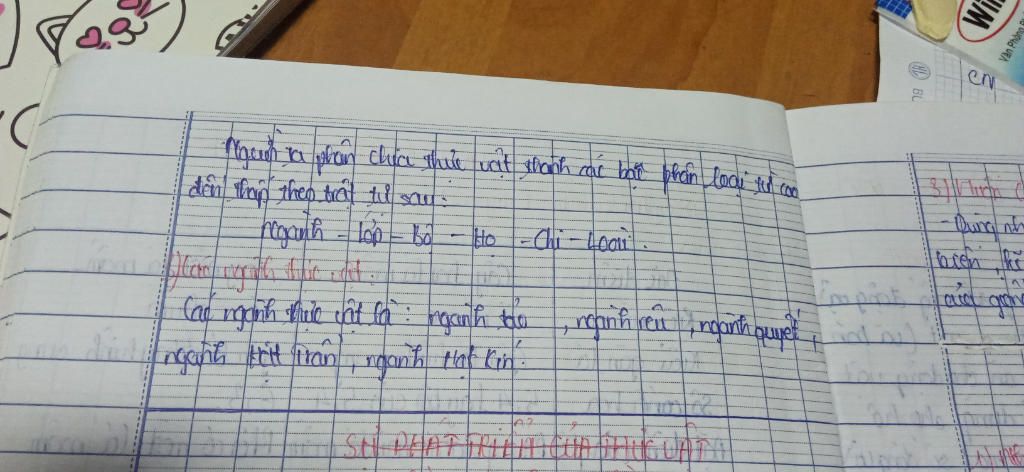 Người ta phân chia thực vật thành các bậc phân loại từ cao
đến thấp theo trật tự sau:
Ngành - Lớp - Bộ - Họ - Chi - Loài.
Các ngành thực vật.
Các ngành thực vật là: ngành tảo, ngành rêu, ngành quyết,
ngành Hạt trần, ngành Hạt kín.
SỰ PHÁT TRIỂN CỦA THỰC VẬT
3)
- Dùng
CM
Văn Phòng